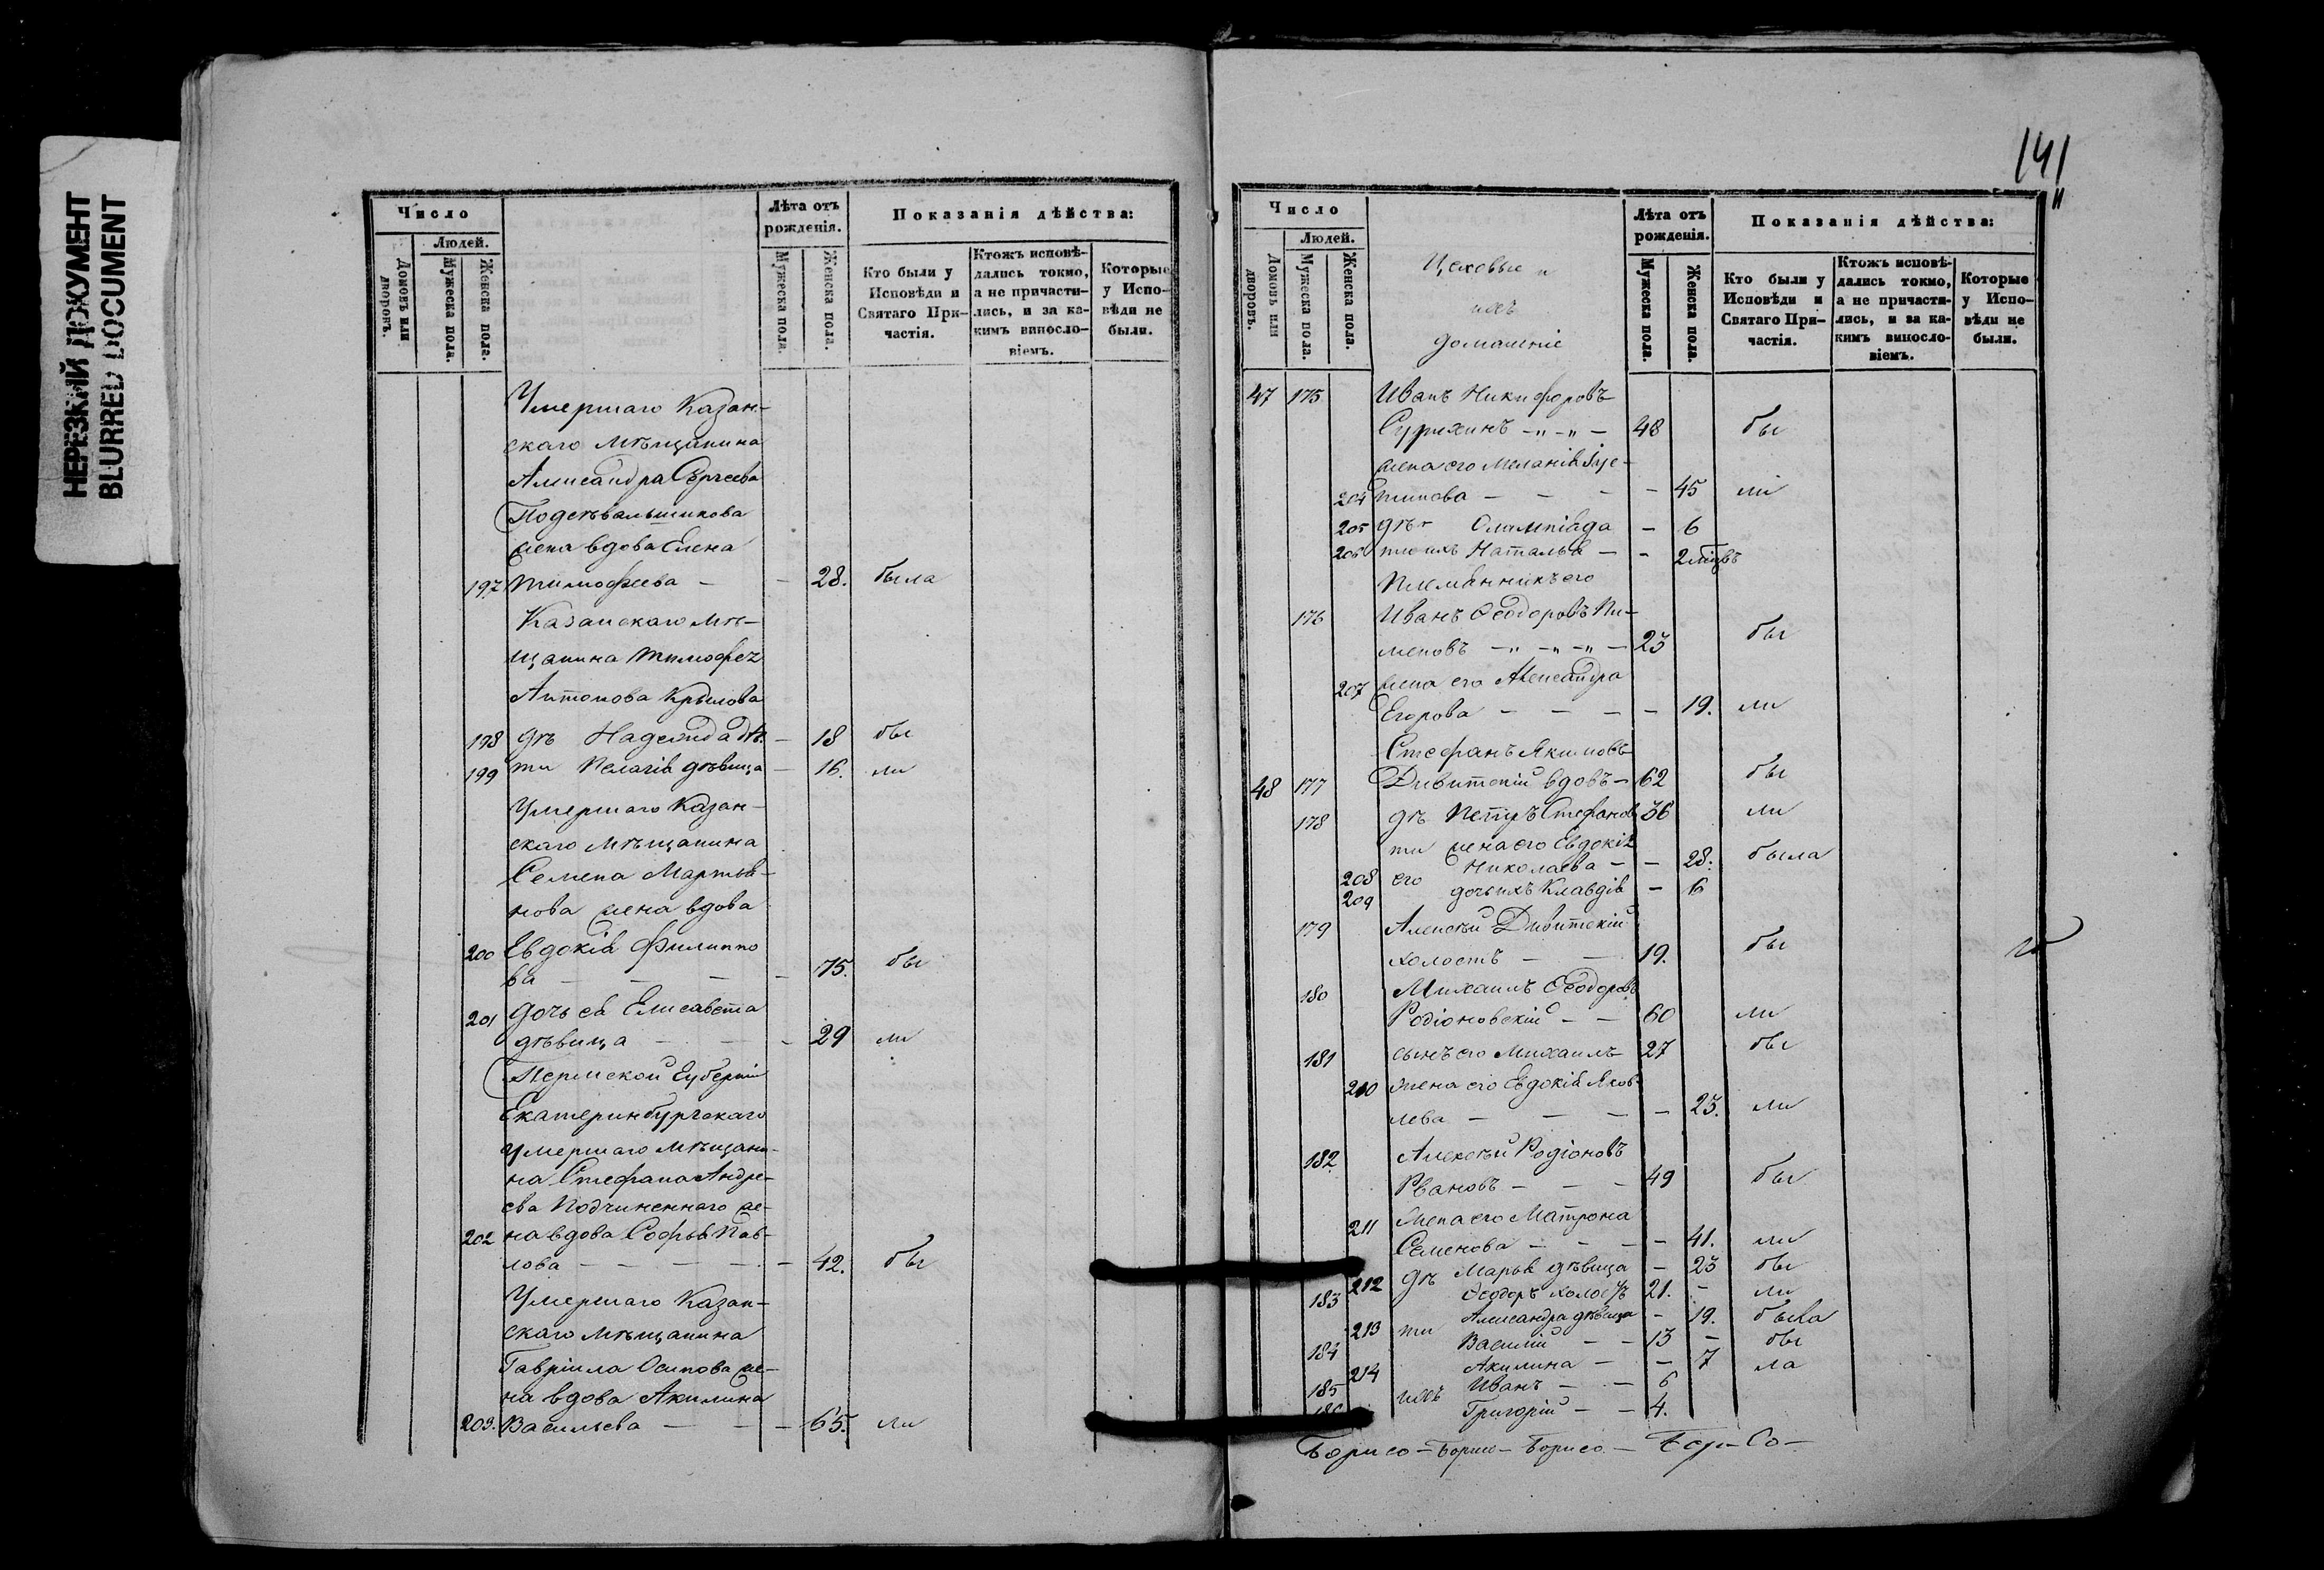 НЕРЕЗКИЙ ДОКУМЕНТ
BLURRED DOCUMENT
Число
Людей.
Домовъ или дворовъ.
Мужеска пола.
Женска пола.
Лѣта отъ рожденія.
Мужеска пола.
Женска пола.
Показанія дѣйства:
Кто были у Исповѣди и Святаго Причастія.
Ктожъ исповѣдались токмо, а не причастились, и за какимъ винословіемъ.
Которые у Исповѣди не были.
Умершаго Казан-
скаго мѣщанина
Александра Сергеева
Подсѣвальщикова
жена вдова Елена
197 Тимофеева - - 28. была
Казанскаго мѣ-
щанина Тимофея
Антонова Крылова
198 дѣ Надежда дѣ. - 18 бы
199 ти Пелагія дѣвица - 16. ли
Умершаго Казан-
скаго мѣщанина
Семена Мартья-
нова жена вдова
200 Евдокія Филиппо
ва - - - - 75. бы
201 дочь ея Елисавета
дѣвица - - - 29 ли
Пермской Губерніи
Екатеринбургскаго
умершаго мѣщани-
на Стефана Андре-
ева Подчиненнаго же-
202 на вдова Софья Пав-
лова - - - - - 42. бы
Умершаго Казан-
скаго мѣщанина
Гавріила Осипова же-
на вдова Акилина
203. Васильева - - - 65. ли
141
Число
Людей.
Домовъ или дворовъ.
Мужеска пола.
Женска пола.
Цеховые и
ихъ
домашніе
Лѣта отъ рожденія.
Мужеска пола.
Женска пола.
Показанія дѣйства:
Кто были у Исповѣди и Святаго Причастія.
Ктожъ исповѣдались токмо, а не причастились, и за какимъ винословіемъ.
Которые у Исповѣди не были.
47 175 Иванъ Никифоровъ
-"-"- 48 бы
жена его Меланія Іус-
204 тинова - - - - 45 ли
205 дѣ- Олимпіада - 6
206 ти ихъ Наталья - - 2 мѣсяцъ
Племянникъ его
176 Иванъ Ѳеодоровъ Пи-
меновъ -"-"-"- 23 бы
207 жена его Александра
Егорова - - - - 19. ли
Стефанъ Якимовъ
48 177 вдовъ - 62 бы
178 дѣ Петръ Стефанов 36 ли
ти жена его Евдокія
208 его Николаева - - 28. была
209 дочь ихъ Клавдія - 6
179 Алексѣй
холостъ - - 19. бы
180 Михаилъ Ѳеодоровъ
Родіоновскій - - 60 ли
181 сынъ его Михаилъ 27 бы
210 жена его Евдокія Яков-
лева - - - - 23. ли
182 Алексѣй Родіоновъ
Рвановъ - - - 49 бы
211 Жена его Матрона
Семенова - - - - 41. ли
212 дѣ Марья дѣвица - 23 бы
183 Ѳеодоръ холостъ 21. - ли
213 ти Александра дѣвица - 19. была
184 Василій - - 13 - бы
214 Акилина - - 7 ла
185 ихъ Иванъ - - 6
Григорій - - 4.
Борисо - Борисо - Борисо -